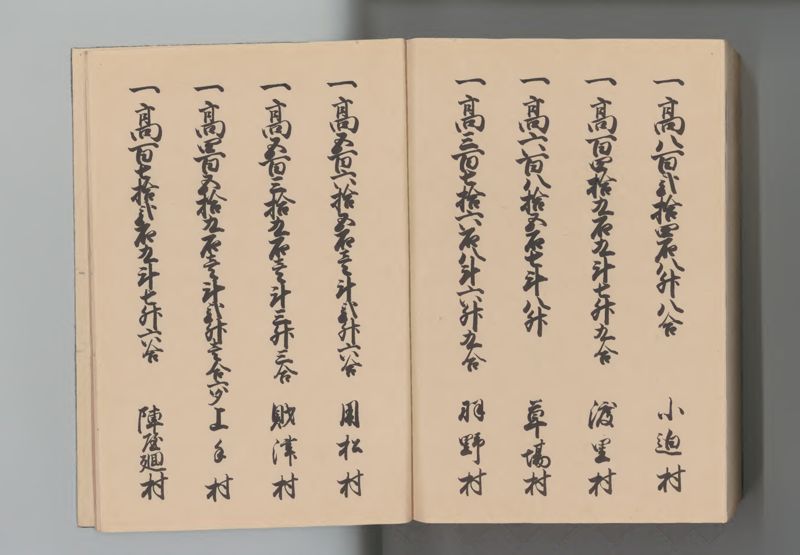 一高八百弐拾四石八升八合 小迫村
一高百四拾九石九斗七升九合 渡里村
一高六百八拾五石七斗八升 草場村
一高三百七拾六石八斗六升九合 羽野村
一高五百六拾五石壱斗弐升六合 用松村
一高五百三拾九石壱斗三升三合 財津村
一高四百五拾九石壱斗弐升壱合六勺 上手村
一高百七拾弐石九斗七升六合 陣屋廻村